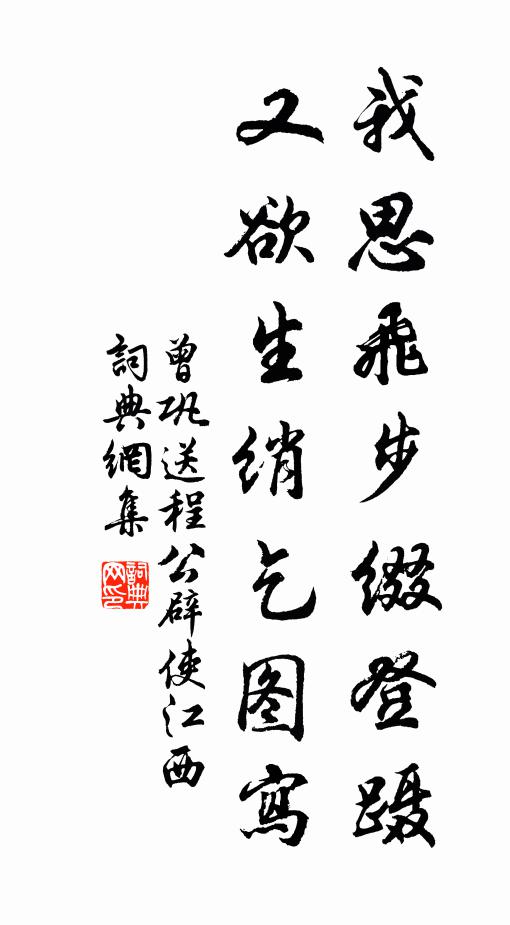 我思飛步缀登蹑
又欲生绡乞图寫
曾巩送程公辟使江西
詞典網集
詞典网印